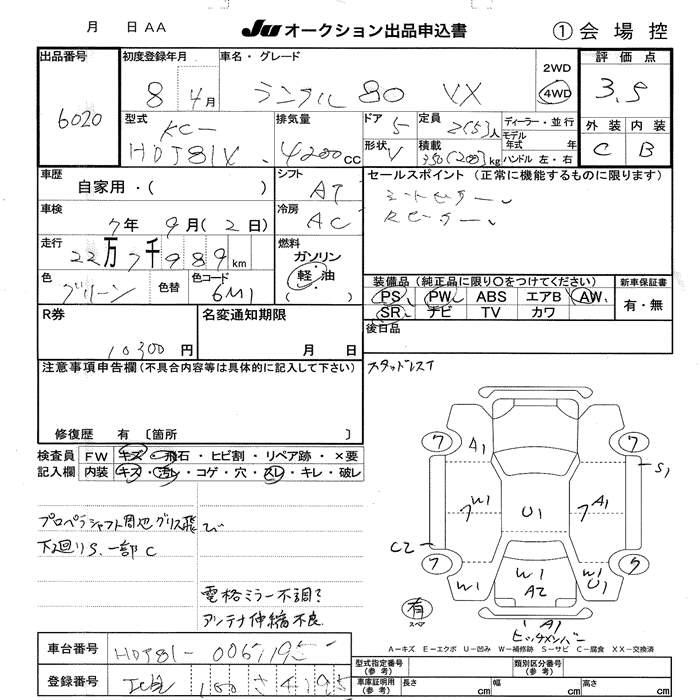 月 日 AA
JU オークション出品申込書
① 会場控
出品番号
6020
初度登録年月
8 4月
車名・グレード
ランクル 80 VX
2WD
4WD
評価点
3.5
外装 内装
C B
型式
KC-
HDJ81V
排気量
4200cc
ドア
5
定員
2(5)人
形状
V
積載
350(200)kg
ディーラー・並行
モデル
年式 年
ハンドル 左・右
車歴
自家用・( )
シフト
AT
セールスポイント (正常に機能するものに限ります)
シートヒーター
車検
7年 9月(2日)
冷房
AC
走行
22万7千989km
燃料
ガソリン
軽・油
( )
色
グリーン
色替
色コード
6M1
装備品 (純正品に限り〇をつけてください)
PS PW ABS エアB AW
SR ナビ TV カワ
新車保証書
有・無
R券
10300円
名変通知期限
月 日
後日品
注意事項申告欄 (不具合内容等は具体的に記入して下さい)
スタッドレス1
修復歴 有 〔箇所 〕
検査員
記入欄
FW キズ・飛石・ヒビ割・リペア跡・×要
内装 キズ・汚レ・コゲ・穴・スレ・キレ・破レ
プロペラシャフト周辺グリス飛び
下廻りS、一部C
電格ミラー不調?
アンテナ伸縮不良
7 A1 7
S1
7 W1 U1 7 A1
C2
7 W1 W1 A2 W1 U1
有
スペア
A1
ヒッチメンバー
A=キズ E=エクボ U=凹み W=補修跡 S=サビ C=腐食 XX=交換済
車台番号
HDJ81-
登録番号
型式指定番号
(参考)
類別区分番号
(参考)
車庫証明用
(参考)
長さ cm
幅 cm
高さ cm